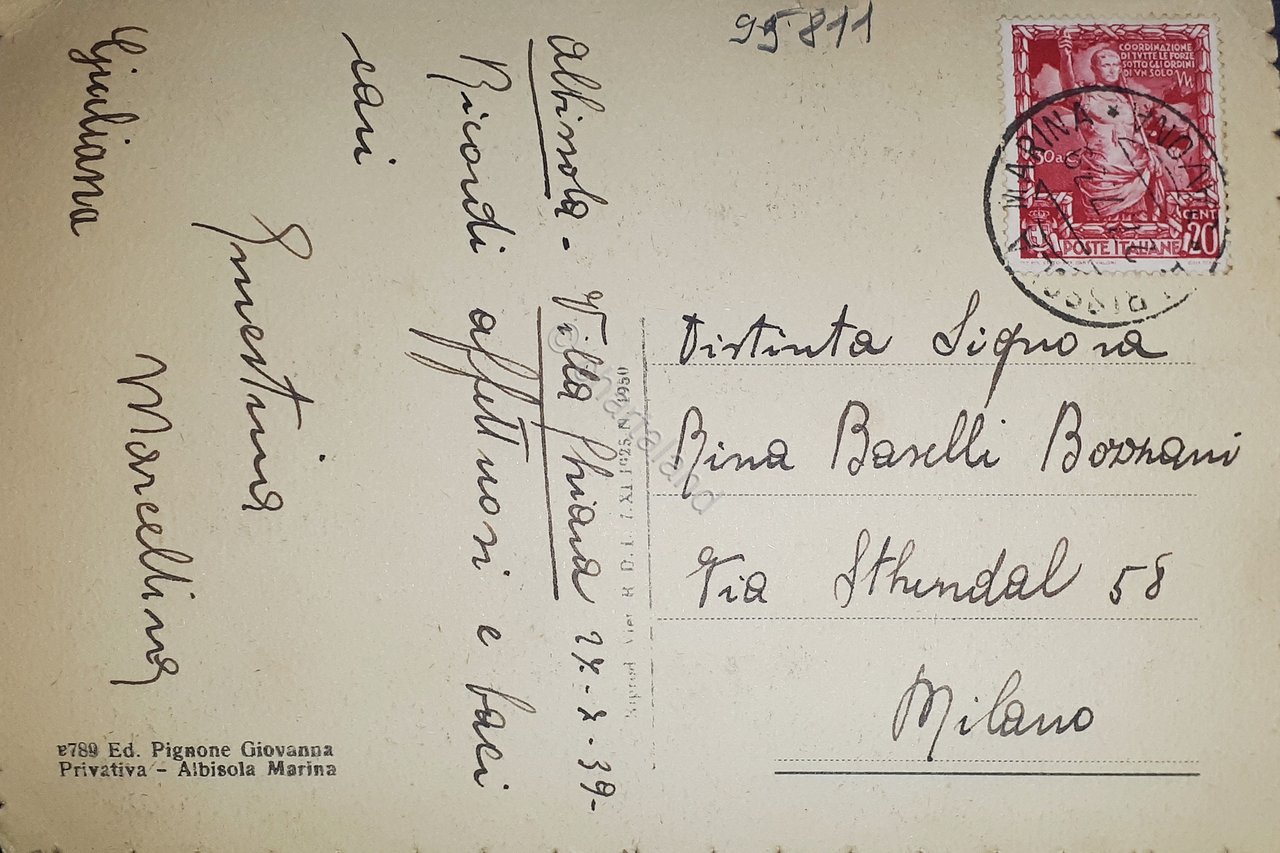 95811
COORDINAZIONE
DI TVTTE LE FORZE
SOTTO GLI ORDINI
DI VN SOLO
30 a.C.
CENT
POSTE ITALIANE 20
MARINA * SAVONA
Albissola - Villa Chiara 27-7-39-
Ricordi affettuosi e baci
cari
Ernestina
Giuliana
Marcellina
Distinta Signora
Rina Baselli Bozzani
Via Sthendal 58
Milano
Riprod. Viet. R. D. L. 7 XI 1925 N. 1950
©Chartaland
e789 Ed. Pignone Giovanna
Privativa - Albisola Marina